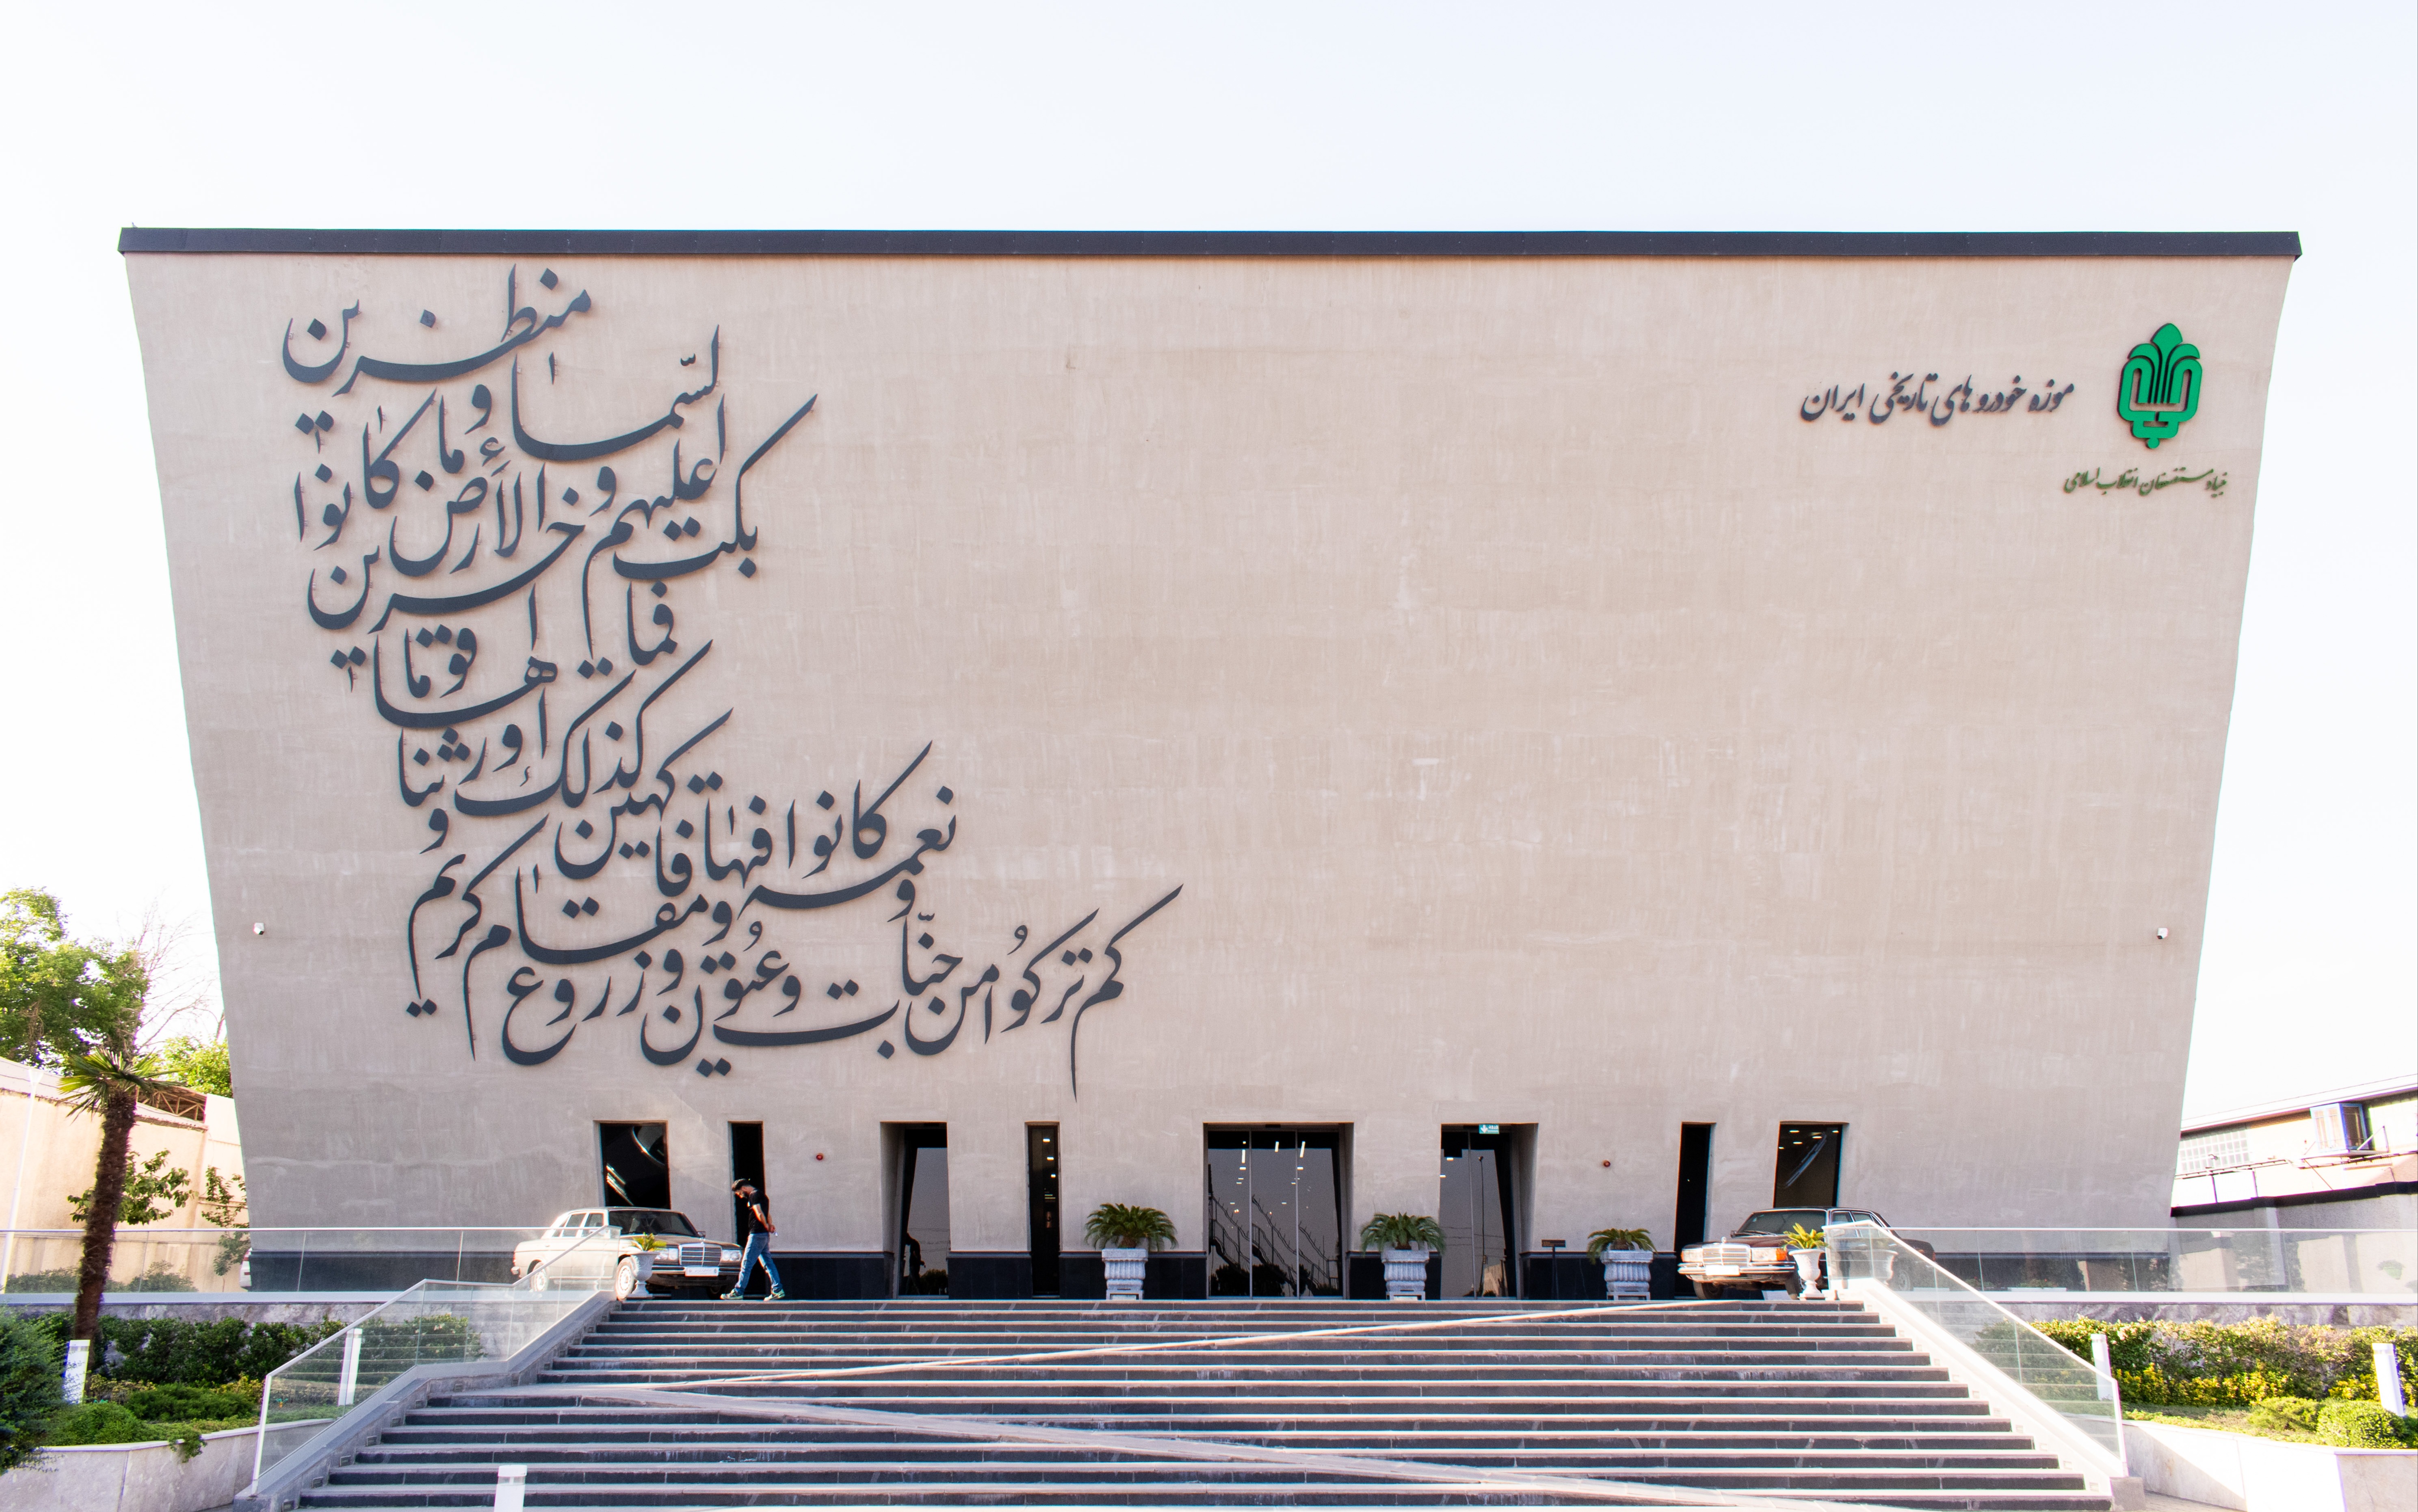 موزه خودروهای تاریخی ایران
بنیاد مستضعفان انقلاب اسلامی
کم ترکُوا من جنّات وعُیون وزروع
ومقٰام کریم
ونعمه کانوا فیهٰا فاکهین
کذلک واورثناها قوما اخرین
فما بکت علیهم السّماء والأرض وما کٰانوا
منظرین